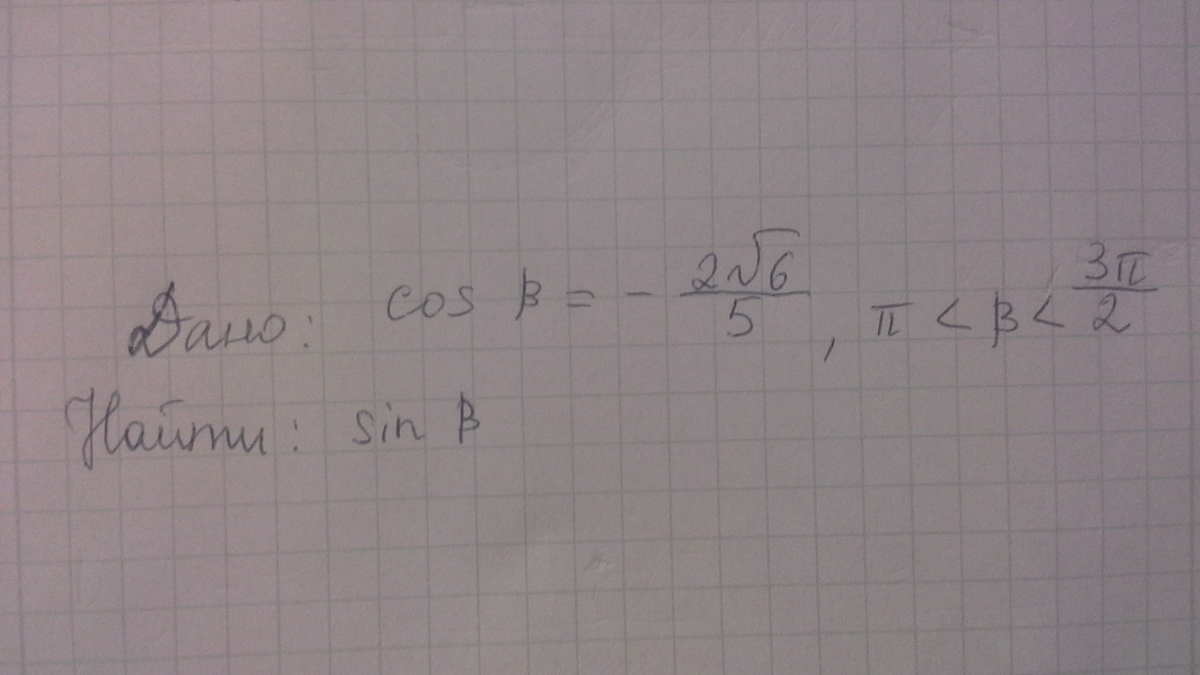 Дано: cos β = - 2√6/5, π < β < 3π/2
Найти: sin β